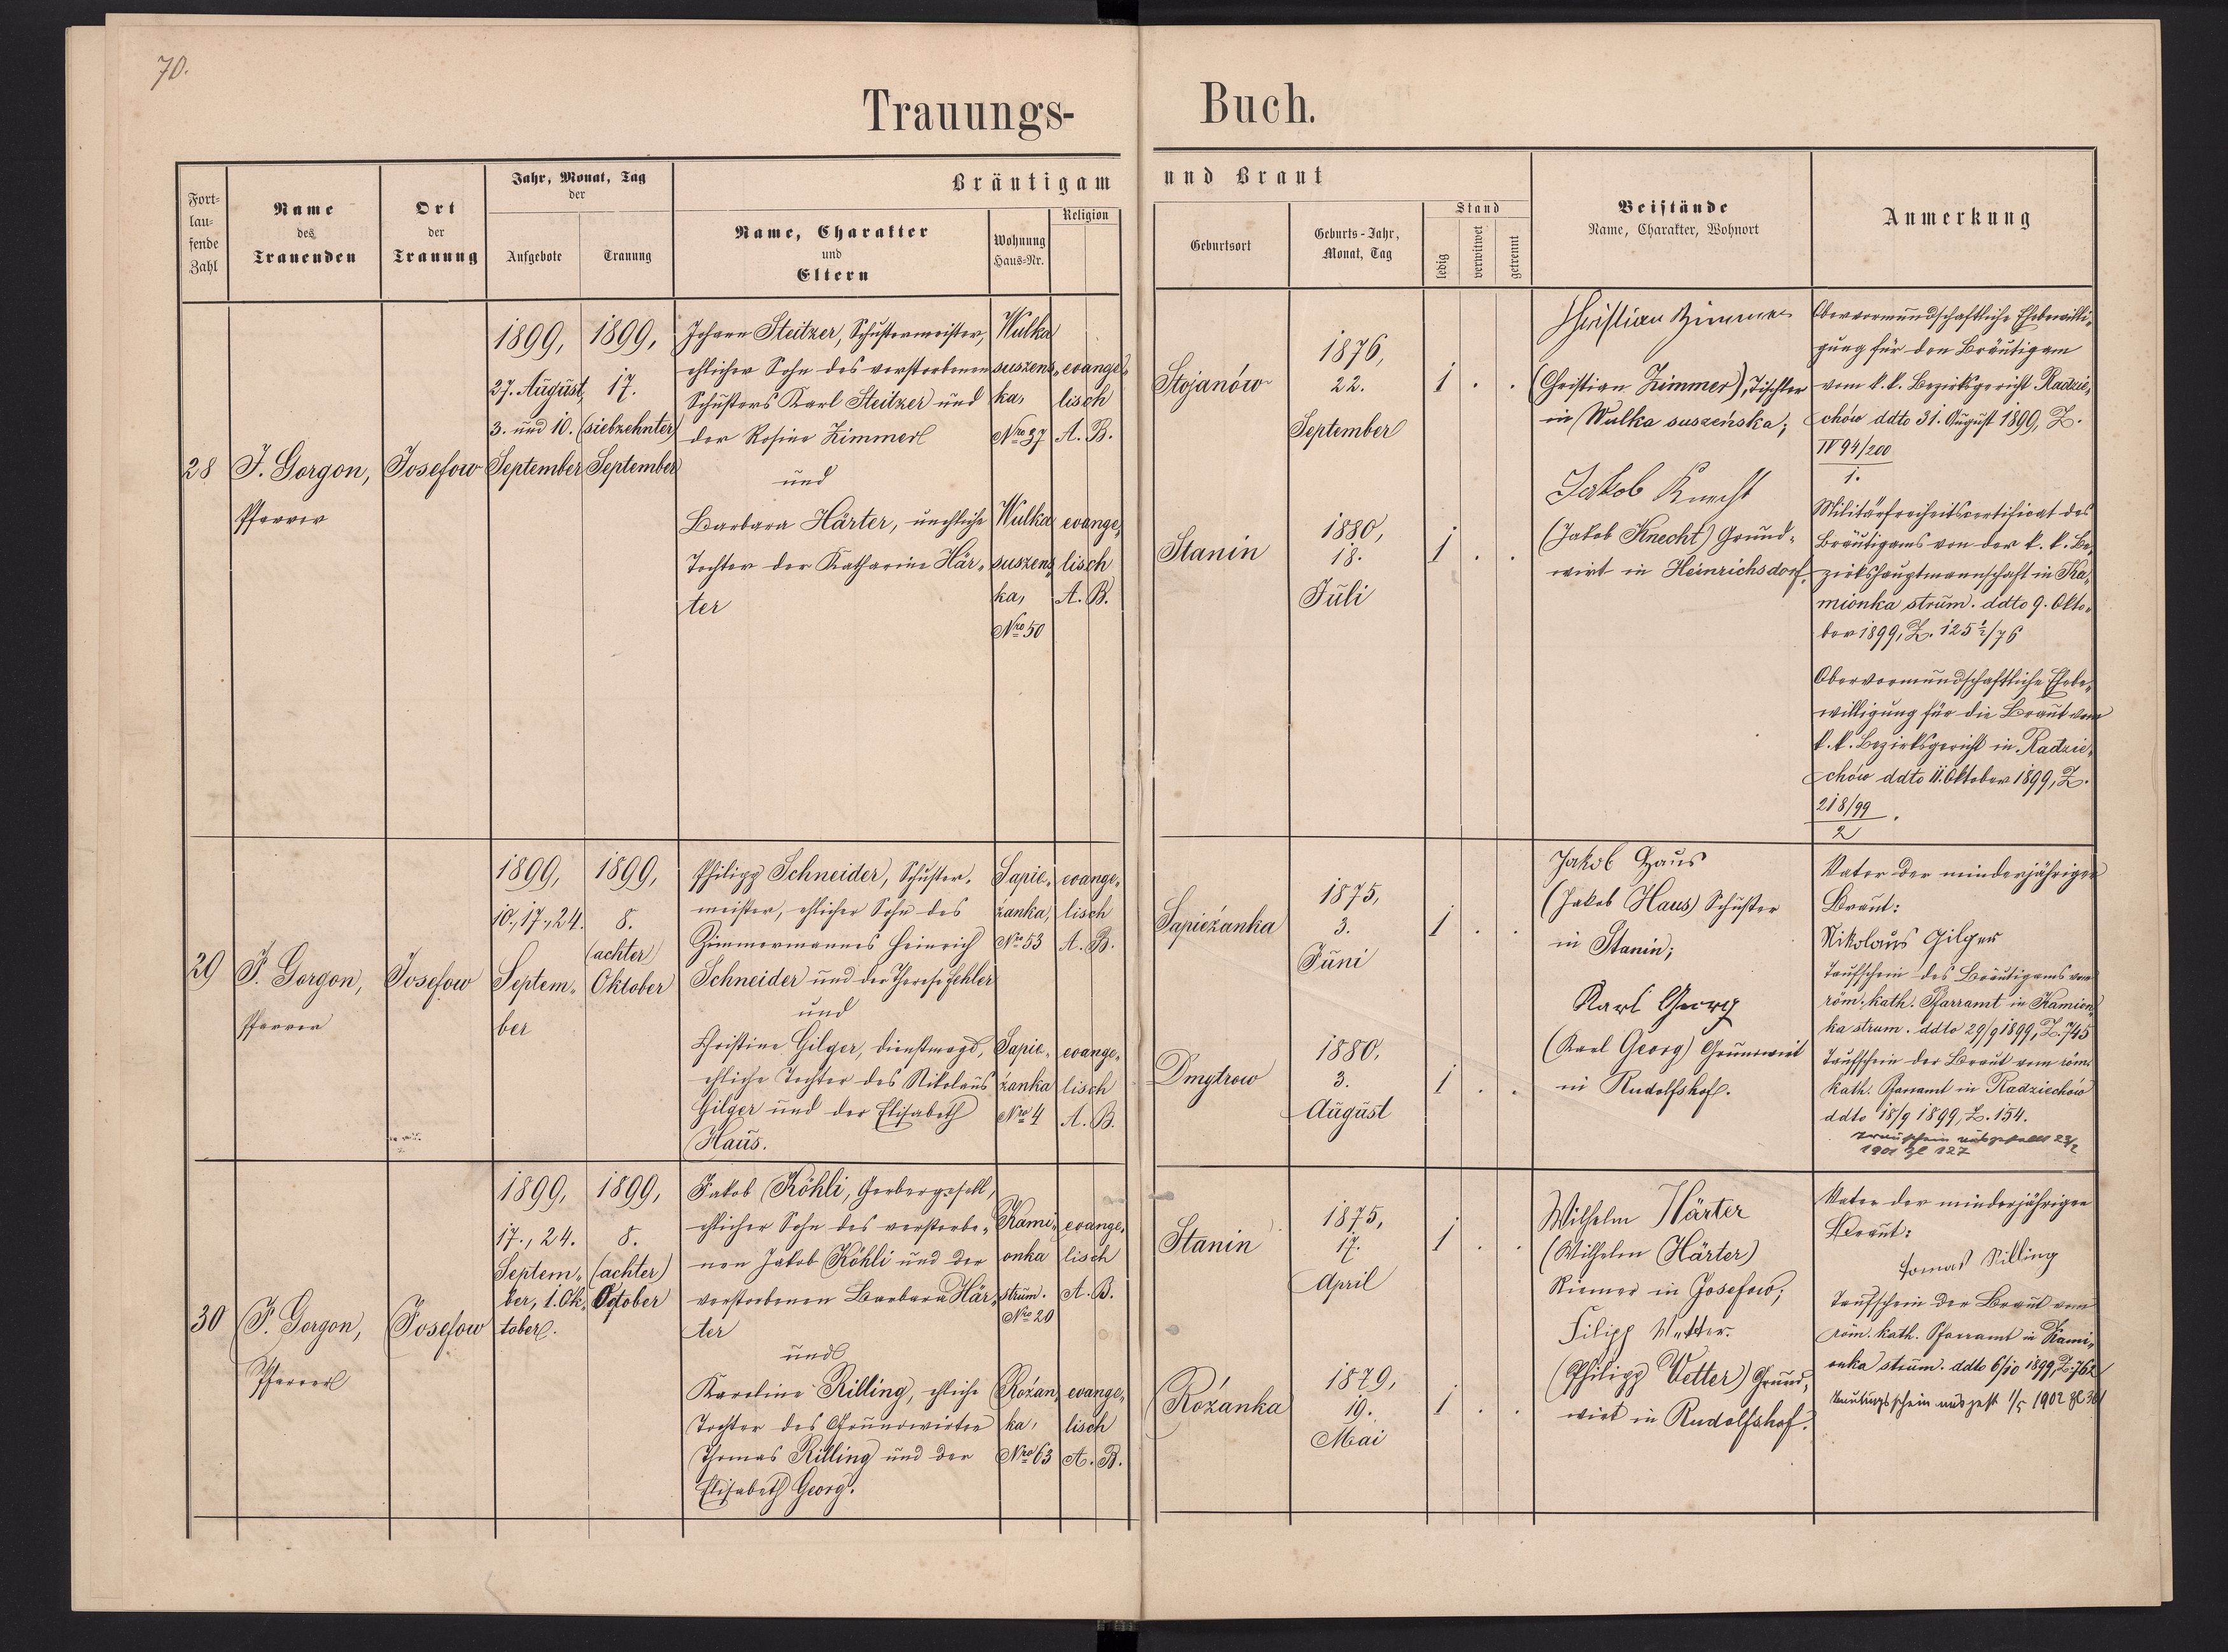 70.
Trauungs-
Buch.
Fort-
lau-
fende
Zahl
Name
des
Trauenden
Ort
der
Trauung
Jahr, Monat, Tag
der
Aufgebote
Trauung
Bräutigam
Name, Charakter
und
Eltern
Wohnung
Haus-Nr.
Religion
und Braut
Geburtsort
Geburts-Jahr,
Monat, Tag
Stand
ledig
verwitwet
getrennt
Beistände
Name, Charakter, Wohnort
Anmerkung
28
J. Gorgon,
Pfarrer
Josefow
1899,
27. August,
3. und 10.
September
1899,
17.
(siebzehnter)
September
Johann Steitzer, Schustermeister,
ehlicher Sohn des verstorbenen
Schusters Karl Steitzer und
der Rosine Zimmer
und
Barbara Härter, unehliche
Tochter der Katharine Här-
ter
Wulka
suszens-
ka,
Nro 37
evange-
lisch
A. B.
Wulka
suszens-
ka,
Nro 50
evange-
lisch
A. B.
Stojanów
1876,
22.
September
1 . .
Stanin
1880,
18.
Juli
1 . .
Christian Zimmer
(Christian Zimmer), Tischler
in Wulka suszeńska;
Jakob Knecht
(Jakob Knecht) Grund-
wirt in Heinrichsdorf.
Obervormundschaftliche Ehebewilli-
gung für den Bräutigam
vom k. k. Bezirksgericht Radzie-
chów ddto 31. August 1899, Z.
IV 94/200
1.
Militärfreiheitscertificat des
Bräutigams von der k. k. Be-
zirkshauptmannschaft in Ka-
mionka strum. ddto 9. Okto-
ber 1899, Z. 125 1/2/76
Obervormundschaftliche Ehebe-
willigung für die Braut vom
k. k. Bezirksgericht in Radzie-
chów ddto 11. Oktober 1899, Z.
218/99
2
29
J. Gorgon,
Pfarrer
Josefow
1899,
10., 17., 24.
Septem-
ber
1899,
8.
(achter)
Oktober
Philipp Schneider, Schuster-
meister, ehlicher Sohn des
Zimmermannes Heinrich
Schneider und der Therese Fehler
und
Christine Gilger, Dienstmagd,
ehliche Tochter des Nikolaus
Gilger und der Elisabeth
Haus.
Sapie-
żanka,
Nro 53
evange-
lisch
A. B.
Sapie-
żanka
Nro 4
evange-
lisch
A. B.
Sapieżanka
1875,
3.
Juni
1 . .
Dmytrow
1880,
3.
August
1 . .
Jakob Haus
(Jakob Haus) Schuster
in Stanin;
Karl Georg
(Karl Georg) Grundwirt
in Rudolfshof.
Vater der minderjährigen
Braut:
Nikolaus Gilger
Taufschein des Bräutigams vom
röm. kath. Pfarramt in Kamion-
ka strum. ddto 29/9 1899, Z. 745
Taufschein der Braut vom röm.
kath. Pfarramt in Radziechów
ddto 18/9 1899, Z. 154.
Trauschein ausgestellt 23/2
1901 Zl 127
30
J. Gorgon,
Pfarrer
Josefow
1899,
17., 24.
Septem-
ber, 1. Ok-
tober.
1899,
8.
(achter)
Oktober
Jakob Köhli, Gerbergesell,
ehlicher Sohn des verstorbe-
nen Jakob Köhli und der
verstorbenen Barbara Här-
ter
und
Karoline Rilling, ehliche
Tochter des Grundwirten
Thomas Rilling und der
Elisabeth Georg.
Kami-
onka
strum.
Nro 20
evange-
lisch
A. B.
Rożan-
ka,
Nro 63
evange-
lisch
A. B.
Stanin
1875,
17.
April
1 . .
Rożanka
1879,
19.
Mai
1 . .
Wilhelm Härter
(Wilhelm Härter)
Riemer in Josefow;
Filipp Vetter.
(Philipp Vetter) Grund-
wirt in Rudolfshof.
Vater der minderjährigen
Braut:
Tomas Rilling
Taufschein der Braut vom
röm. kath. Pfarramt in Kami-
onka strum. ddto 6/10 1899, Z. 762
Trauungsschein ausgest 1/5 1902 Zl